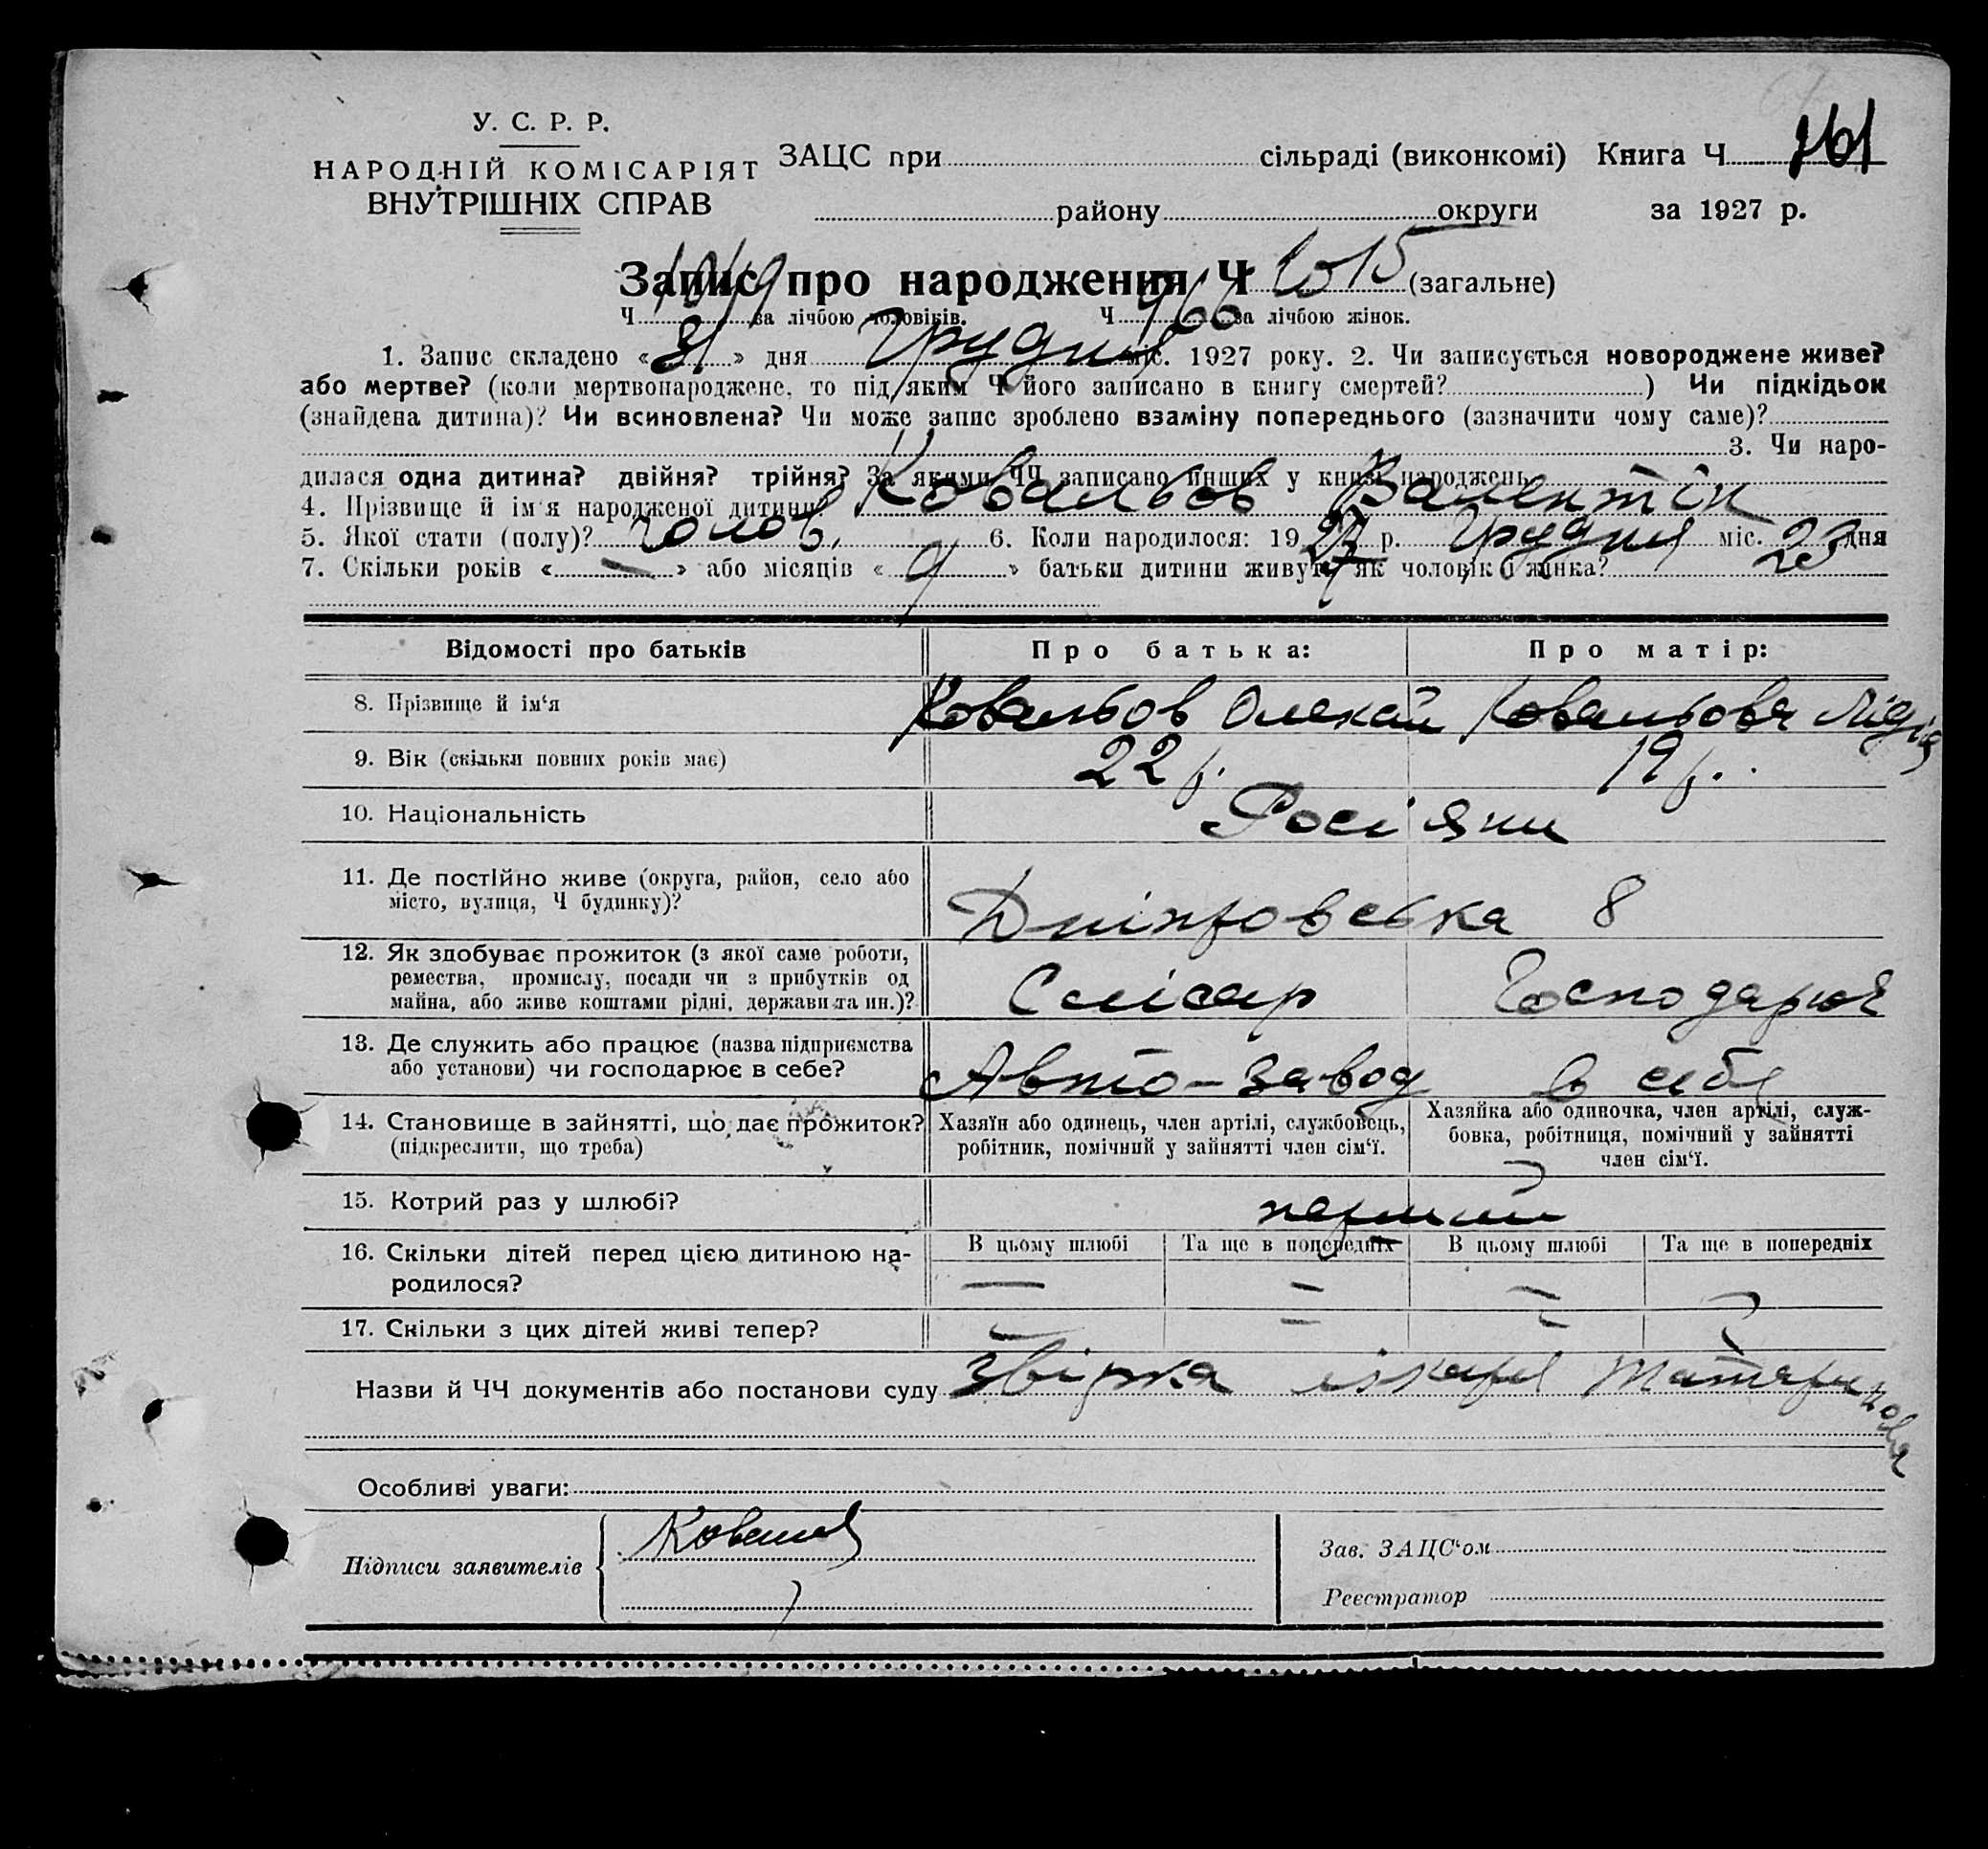 У. С. Р. Р.
НАРОДНІЙ КОМІСАРІЯТ
ВНУТРІШНІХ СПРАВ
ЗАЦС при сільраді (виконкомі) Книга Ч
району округи за 1927 р.
Запис про народження Ч 2015 (загальне)
Ч 1049 за лічбою чоловіків. Ч 966 за лічбою жінок.
1. Запис складено « 31 » дня Грудня міс. 1927 року. 2. Чи записується новороджене живе?
або мертве? (коли мертвонароджене, то під яким Ч його записано в книгу смертей? ) Чи підкідьок
(знайдена дитина)? Чи всиновлена? Чи може запис зроблено взаміну попереднього (зазначити чому саме)?
3. Чи наро-
дилася одна дитина? двійня? трійня? За якими ЧЧ записано инших у книзі народжень
4. Прізвище й ім'я народженої дитини Ковальов Валентін
5. Якої стати (полу)? чолов. 6. Коли народилося: 1927 р. Грудня міс. 23 дня
7. Скільки років « — » або місяців « 9 » батьки дитини живуть як чоловік і жінка?
Відомості про батьків Про батька: Про матір:
8. Прізвище й ім'я Ковальов Олексай Ковальова Лідія
9. Вік (скільки повних років має) 22 р. 19 р.
10. Національність Росіяни
11. Де постійно живе (округа, район, село або
місто, вулиця, Ч будинку)? Дніпровська 8
12. Як здобуває прожиток (з якої саме роботи,
ремества, промислу, посади чи з прибутків од
майна, або живе коштами рідні, держави та ин.)? Слісар Господарює
13. Де служить або працює (назва підприємства
або установи) чи господарює в себе? Авто-завод в себе
14. Становище в зайнятті, що дає прожиток?
(підкреслити, що треба)
Хазяїн або одинець, член артілі, службовець,
робітник, помічний у зайнятті член сім'ї.
Хазяйка або одиночка, член артілі, служ-
бовка, робітниця, помічний у зайнятті
член сім'ї.
15. Котрий раз у шлюбі? перший
16. Скільки дітей перед цією дитиною на-
родилося?
В цьому шлюбі Та ще в попередніх В цьому шлюбі Та ще в попередніх
— — — —
17. Скільки з цих дітей живі тепер? — — — —
Назви й ЧЧ документів або постанови суду Звірка лікаря
Особливі уваги:
Підписи заявителів Ковальов
Зав. ЗАЦС'ом
Реєстратор